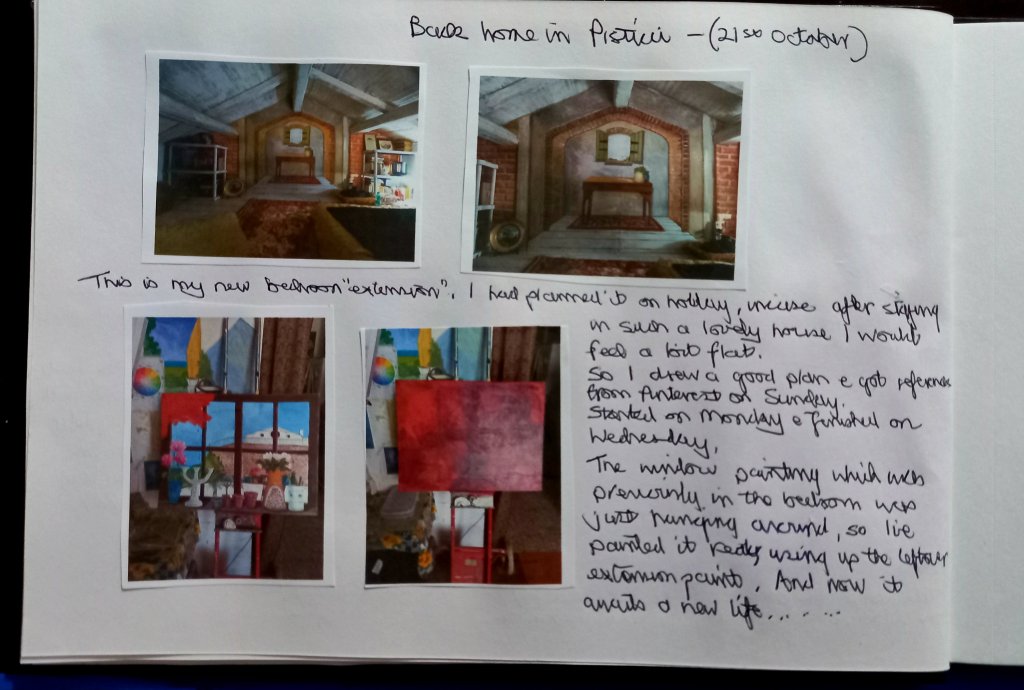 Back home in Pisticci - (21st October)
This is my new bedroom "extension". I had planned it on holiday, incase after staying
in such a lovely house I would
feel a bit flat.
So I drew a good plan e got reference
from Pinterest on Sunday.
Started on Monday e finished on
Wednesday.
The window painting which was
previously in the bedroom was
just hanging around, so I've
painted it using up the leftover
extension paint. And now it
awaits a new life......